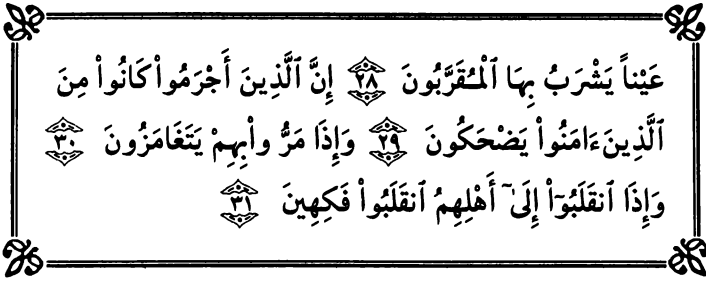 عَيْناً يَشْرَبُ بِهَا ٱلْمُقَرَّبُونَ ٢٨ إِنَّ ٱلَّذِينَ أَجْرَمُوا۟ كَانُوا۟ مِنَ
ٱلَّذِينَ ءَامَنُوا۟ يَضْحَكُونَ ٢٩ وَإِذَا مَرُّوا۟ بِهِمْ يَتَغَامَزُونَ ٣٠
وَإِذَا ٱنقَلَبُوٓا۟ إِلَىٰٓ أَهْلِهِمُ ٱنقَلَبُوا۟ فَكِهِينَ ٣١